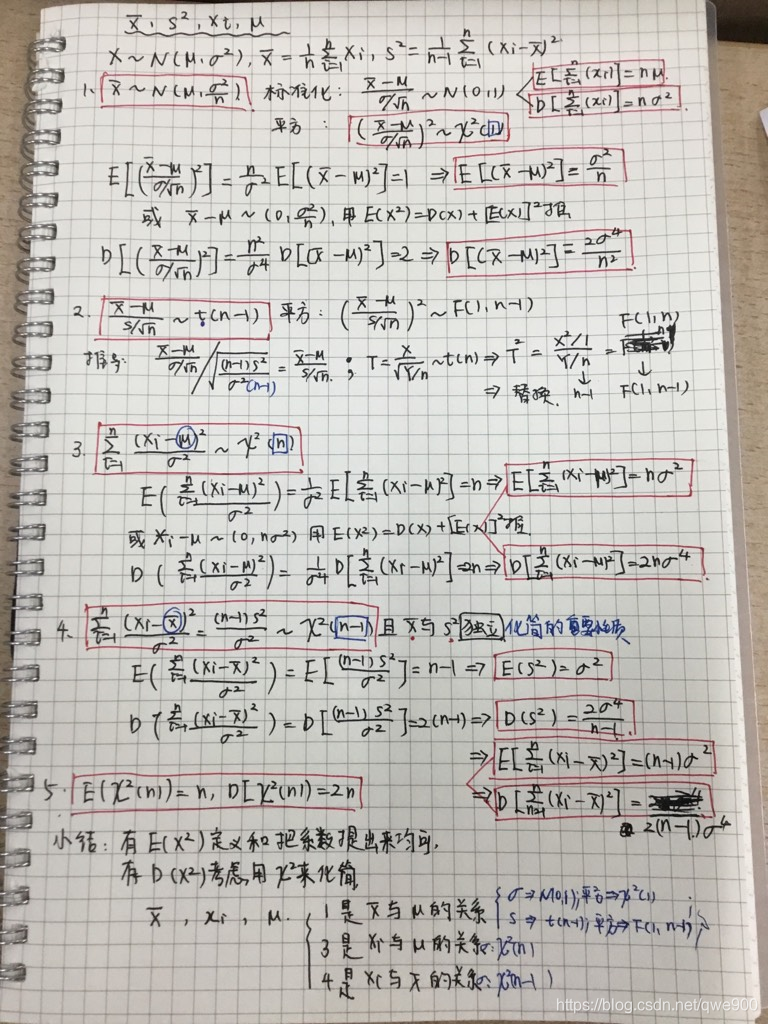 x̄, s², xi, μ
X ~ N(μ, σ²), x̄ = 1/n Σ(i=1→n) xi, s² = 1/(n-1) Σ(i=1→n) (xi - x̄)²
1. x̄ ~ N(μ, σ²/n) 标准化: (x̄-μ)/(σ/√n) ~ N(0,1) E[Σ(i=1→n)(xi)] = nμ.
D[Σ(i=1→n)(xi)] = nσ²
平方: ((x̄-μ)/(σ/√n))² ~ χ²(1)
E[((x̄-μ)/(σ/√n))²] = n/σ² E[(x̄-μ)²] = 1 ⇒ E[(x̄-μ)²] = σ²/n
或 x̄-μ ~ (0, σ²/n), 用 E(x²) = D(x) + [E(x)]² 推
D[((x̄-μ)/(σ/√n))²] = n²/σ⁴ D[(x̄-μ)²] = 2 ⇒ D[(x̄-μ)²] = 2σ⁴/n²
2. (x̄-μ)/(s/√n) ~ t(n-1) 平方: ((x̄-μ)/(s/√n))² ~ F(1, n-1)
(x̄-μ)/(σ/√n) / √((n-1)s²/σ²(n-1)) = (x̄-μ)/(s/√n) ; T = X/√(Y/n) ~ t(n) ⇒ T² = (x²/1)/(Y/n) = F(1,n)
⇒ 替换. n-1 F(1, n-1)
3. Σ(i=1→n) (xi-μ)²/σ² ~ χ²(n)
E(Σ(i=1→n)(xi-μ)²/σ²) = 1/σ² E[Σ(i=1→n)(xi-μ)²] = n ⇒ E[Σ(i=1→n)(xi-μ)²] = nσ²
或 xi-μ ~ (0, nσ²) 用 E(x²) = D(x) + [E(x)]² 推
D(Σ(i=1→n)(xi-μ)²/σ²) = 1/σ⁴ D[Σ(i=1→n)(xi-μ)²] = 2n ⇒ D[Σ(i=1→n)(xi-μ)²] = 2nσ⁴
4. Σ(i=1→n) (xi-x̄)²/σ² = (n-1)s²/σ² ~ χ²(n-1) 且 x̄ 与 s² 独立 化简的重要性质
E(Σ(i=1→n)(xi-x̄)²/σ²) = E[(n-1)s²/σ²] = n-1 ⇒ E(s²) = σ²
D(Σ(i=1→n)(xi-x̄)²/σ²) = D[(n-1)s²/σ²] = 2(n-1) ⇒ D(s²) = 2σ⁴/(n-1).
⇒ E[Σ(i=1→n)(xi-x̄)²] = (n-1)σ²
5. E(χ²(n)) = n, D[χ²(n)] = 2n ⇒ D[Σ(xi-x̄)²] =
2(n-1)σ⁴
小结: 有 E(x²) 定义和把系数提出来均可,
有 D(x²) 考虑用 χ² 来化简
x̄, xi, μ. 1 是 x̄ 与 μ 的关系 σ ⇒ N(0,1); 平方 ⇒ χ²(1)
s ⇒ t(n-1); 平方 ⇒ F(1, n-1)
3 是 xi 与 μ 的关系: χ²(n)
4 是 xi 与 x̄ 的关系: χ²(n-1)
https://blog.csdn.net/qwe900